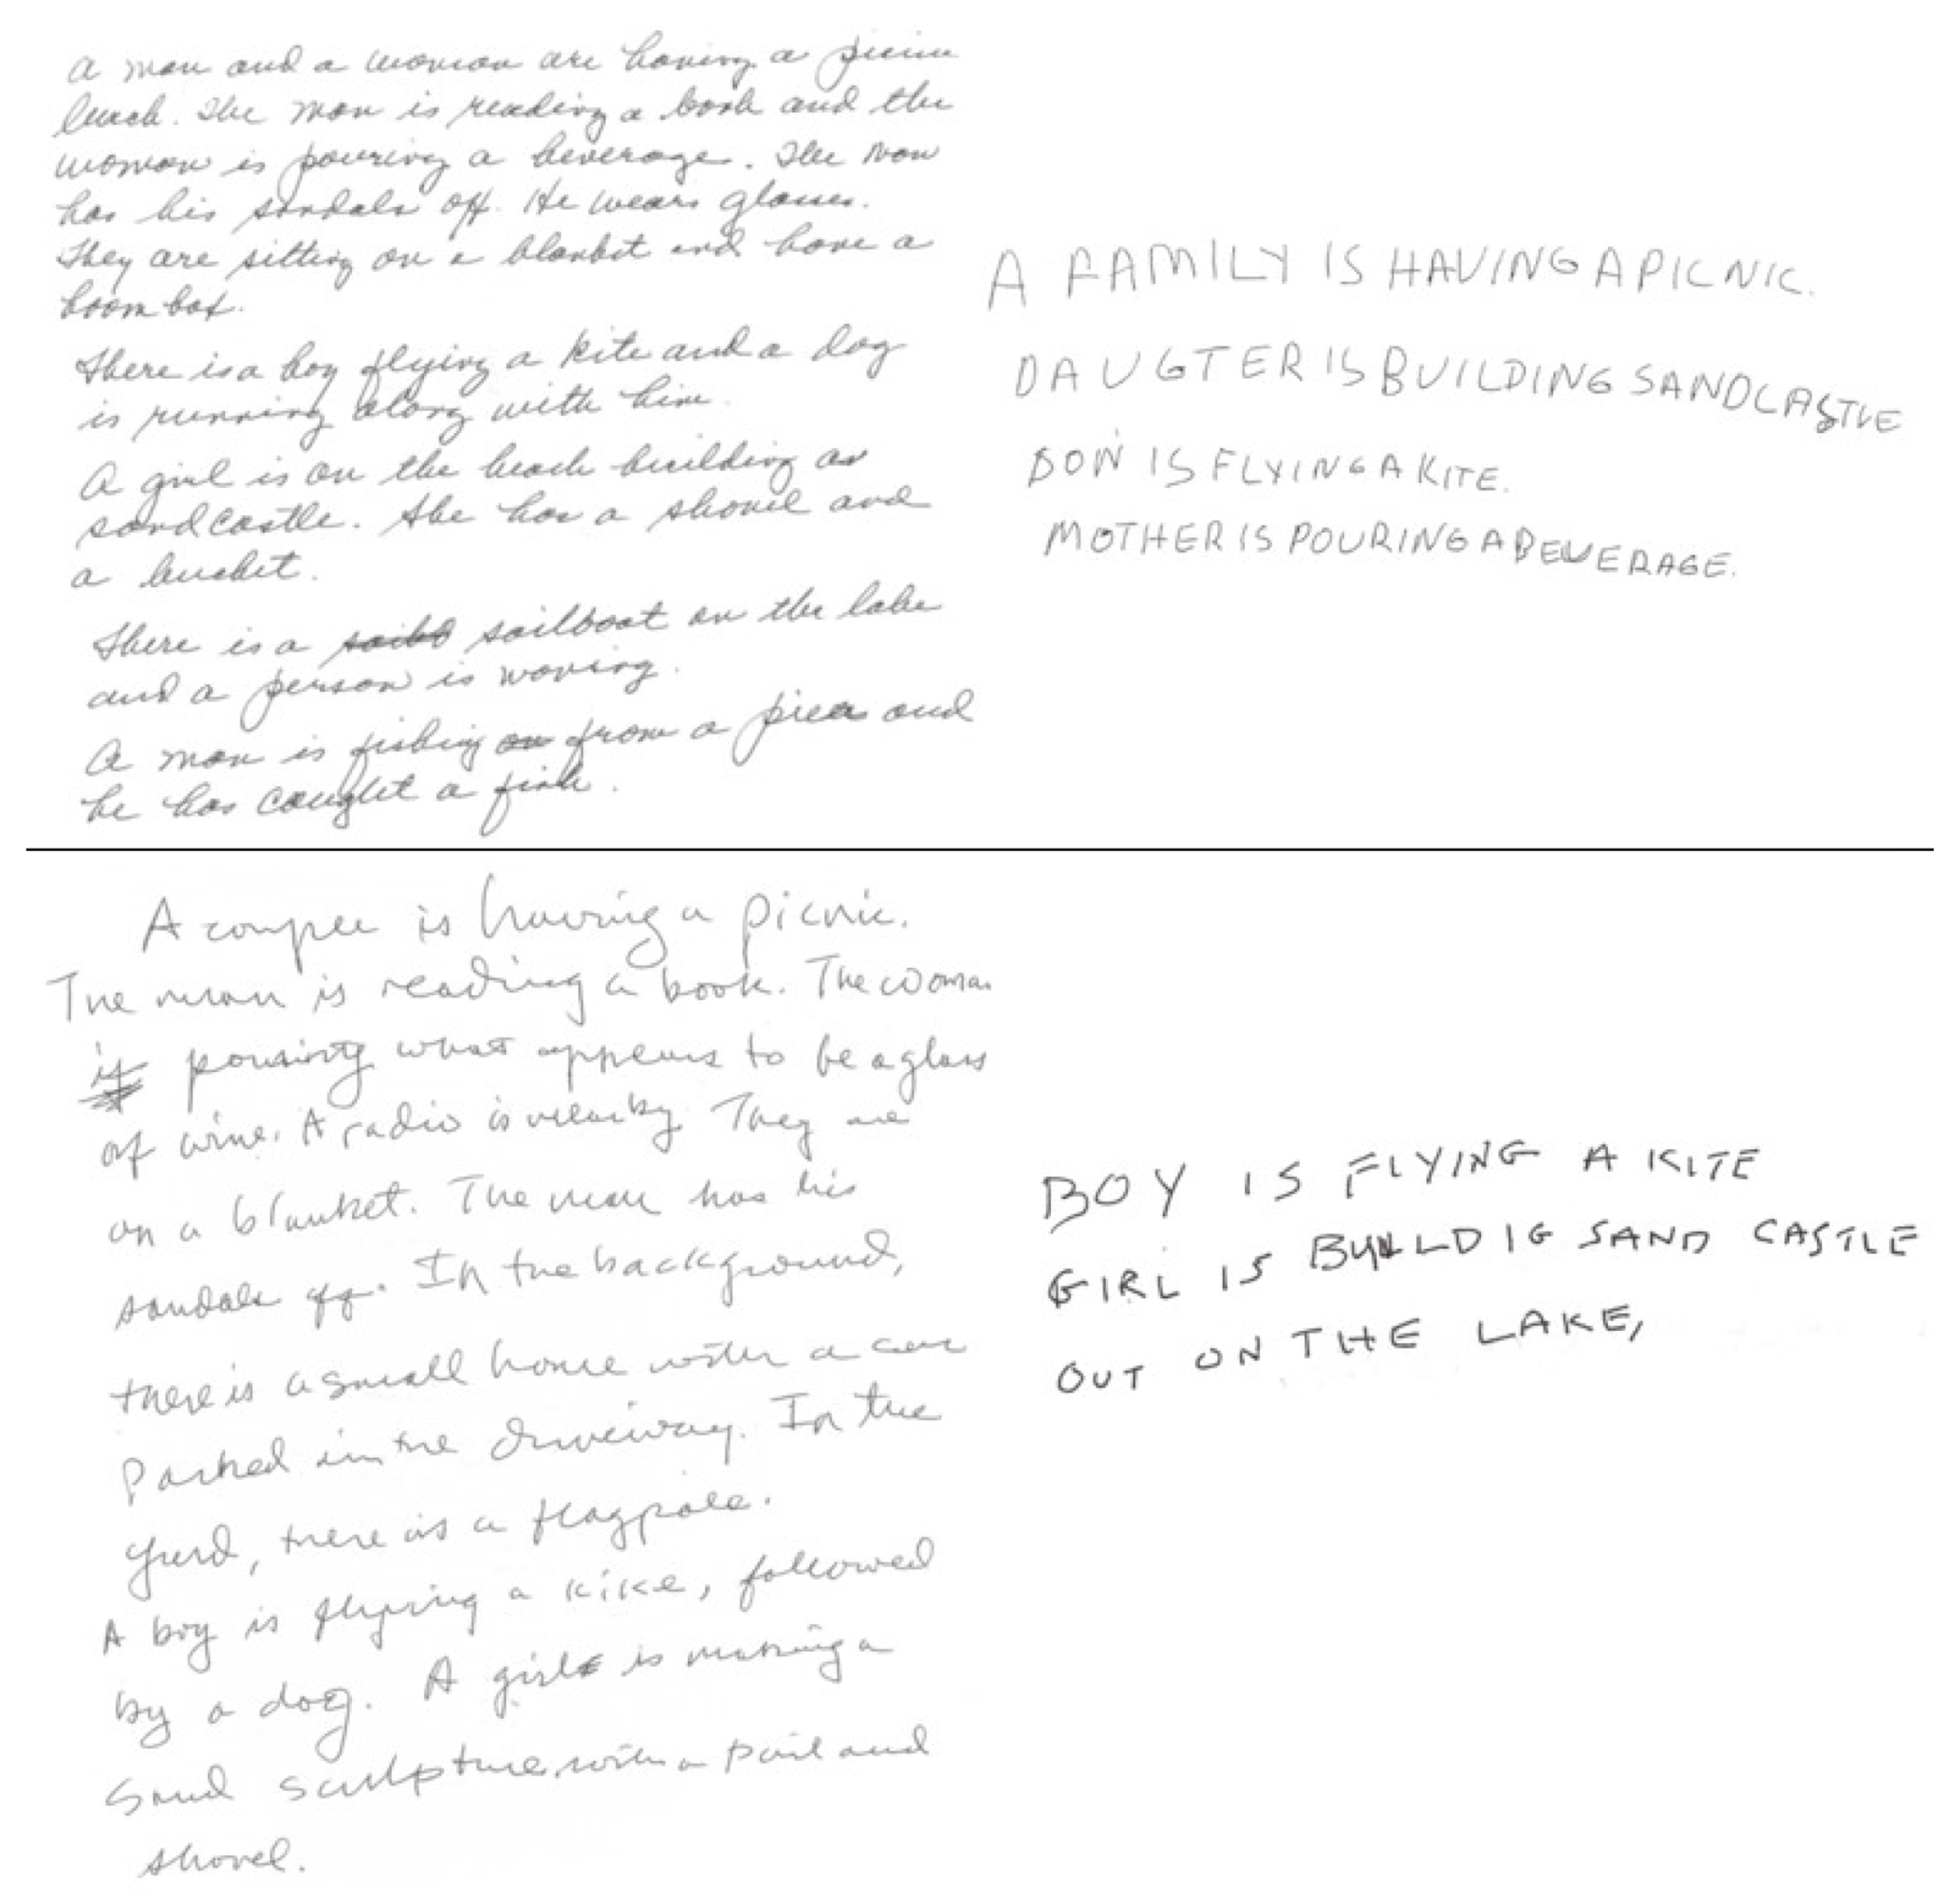 a man and a woman are having a
lunch. The man is reading a book and the
woman is pouring a beverage. The man
has his sandals off. He wears glasses.
They are sitting on a blanket and have a
boom box.
There is a boy flying a kite and a dog
is running along with him.
A girl is on the beach building a
sandcastle. She has a shovel and
a bucket.
There is a sailboat on the lake
and a person is waving.
A man is fishing from a pier and
he has caught a fish.
A FAMILY IS HAVING A PICNIC.
DAUGTER IS BUILDING SANDCASTLE
IS FLYING A KITE.
MOTHER IS POURING A BEVERAGE.
A couple is having a picnic.
The man is reading a book. The woman
is pouring what appears to be a glass
of wine. A radio is nearby. They are
on a blanket. The man has his
sandals off. In the background,
there is a small home with a car
Parked in the driveway. In the
yard, there is a flagpole.
A boy is flying a kike, followed
by a dog. A girl is making a
Sand sculpture, with a pail and
shovel.
BOY IS FLYING A KITE
GIRL IS BUILDIG SAND CASTLE
OUT ON THE LAKE,